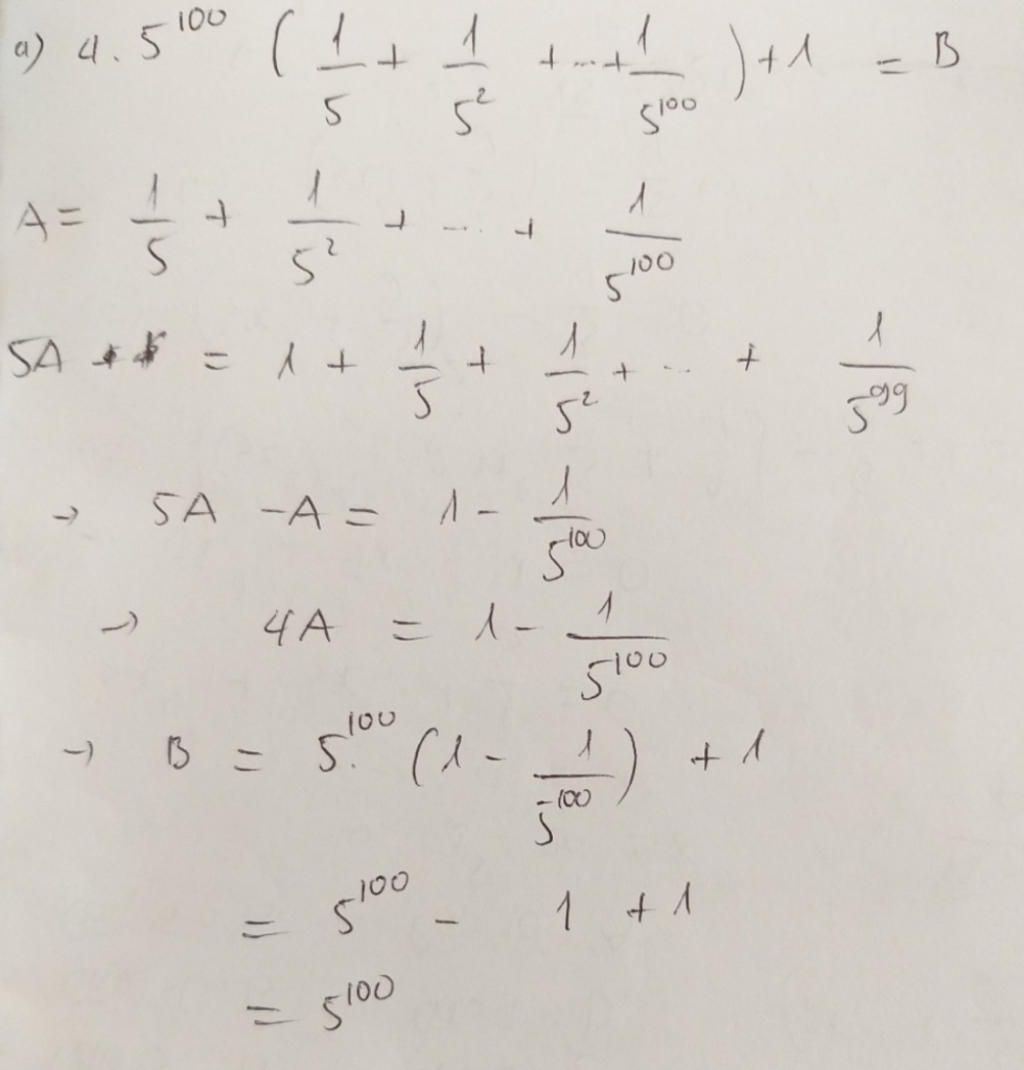 a) 4. 5^100 ( 1/5 + 1/5^2 + ... + 1/5^100 ) + 1 = B
A = 1/5 + 1/5^2 + ... + 1/5^100
5A = 1 + 1/5 + 1/5^2 + ... + 1/5^99
→ 5A - A = 1 - 1/5^100
→ 4A = 1 - 1/5^100
→ B = 5^100 . (1 - 1/5^100) + 1
= 5^100 - 1 + 1
= 5^100